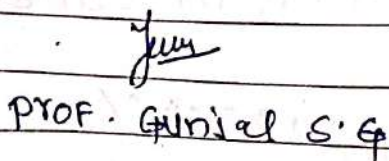 Prof. Gunjal S.G